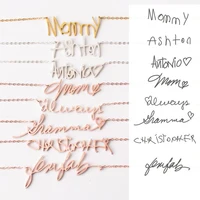 Mommy
Ashton
Antonio♡
Mom♡
always
Gramma♡
CHRISTOPHER
Jenfab
Mommy
Ashton
Antonio♡
Mom♡
always
Gramma♡
CHRISTOPHER
Jenfab